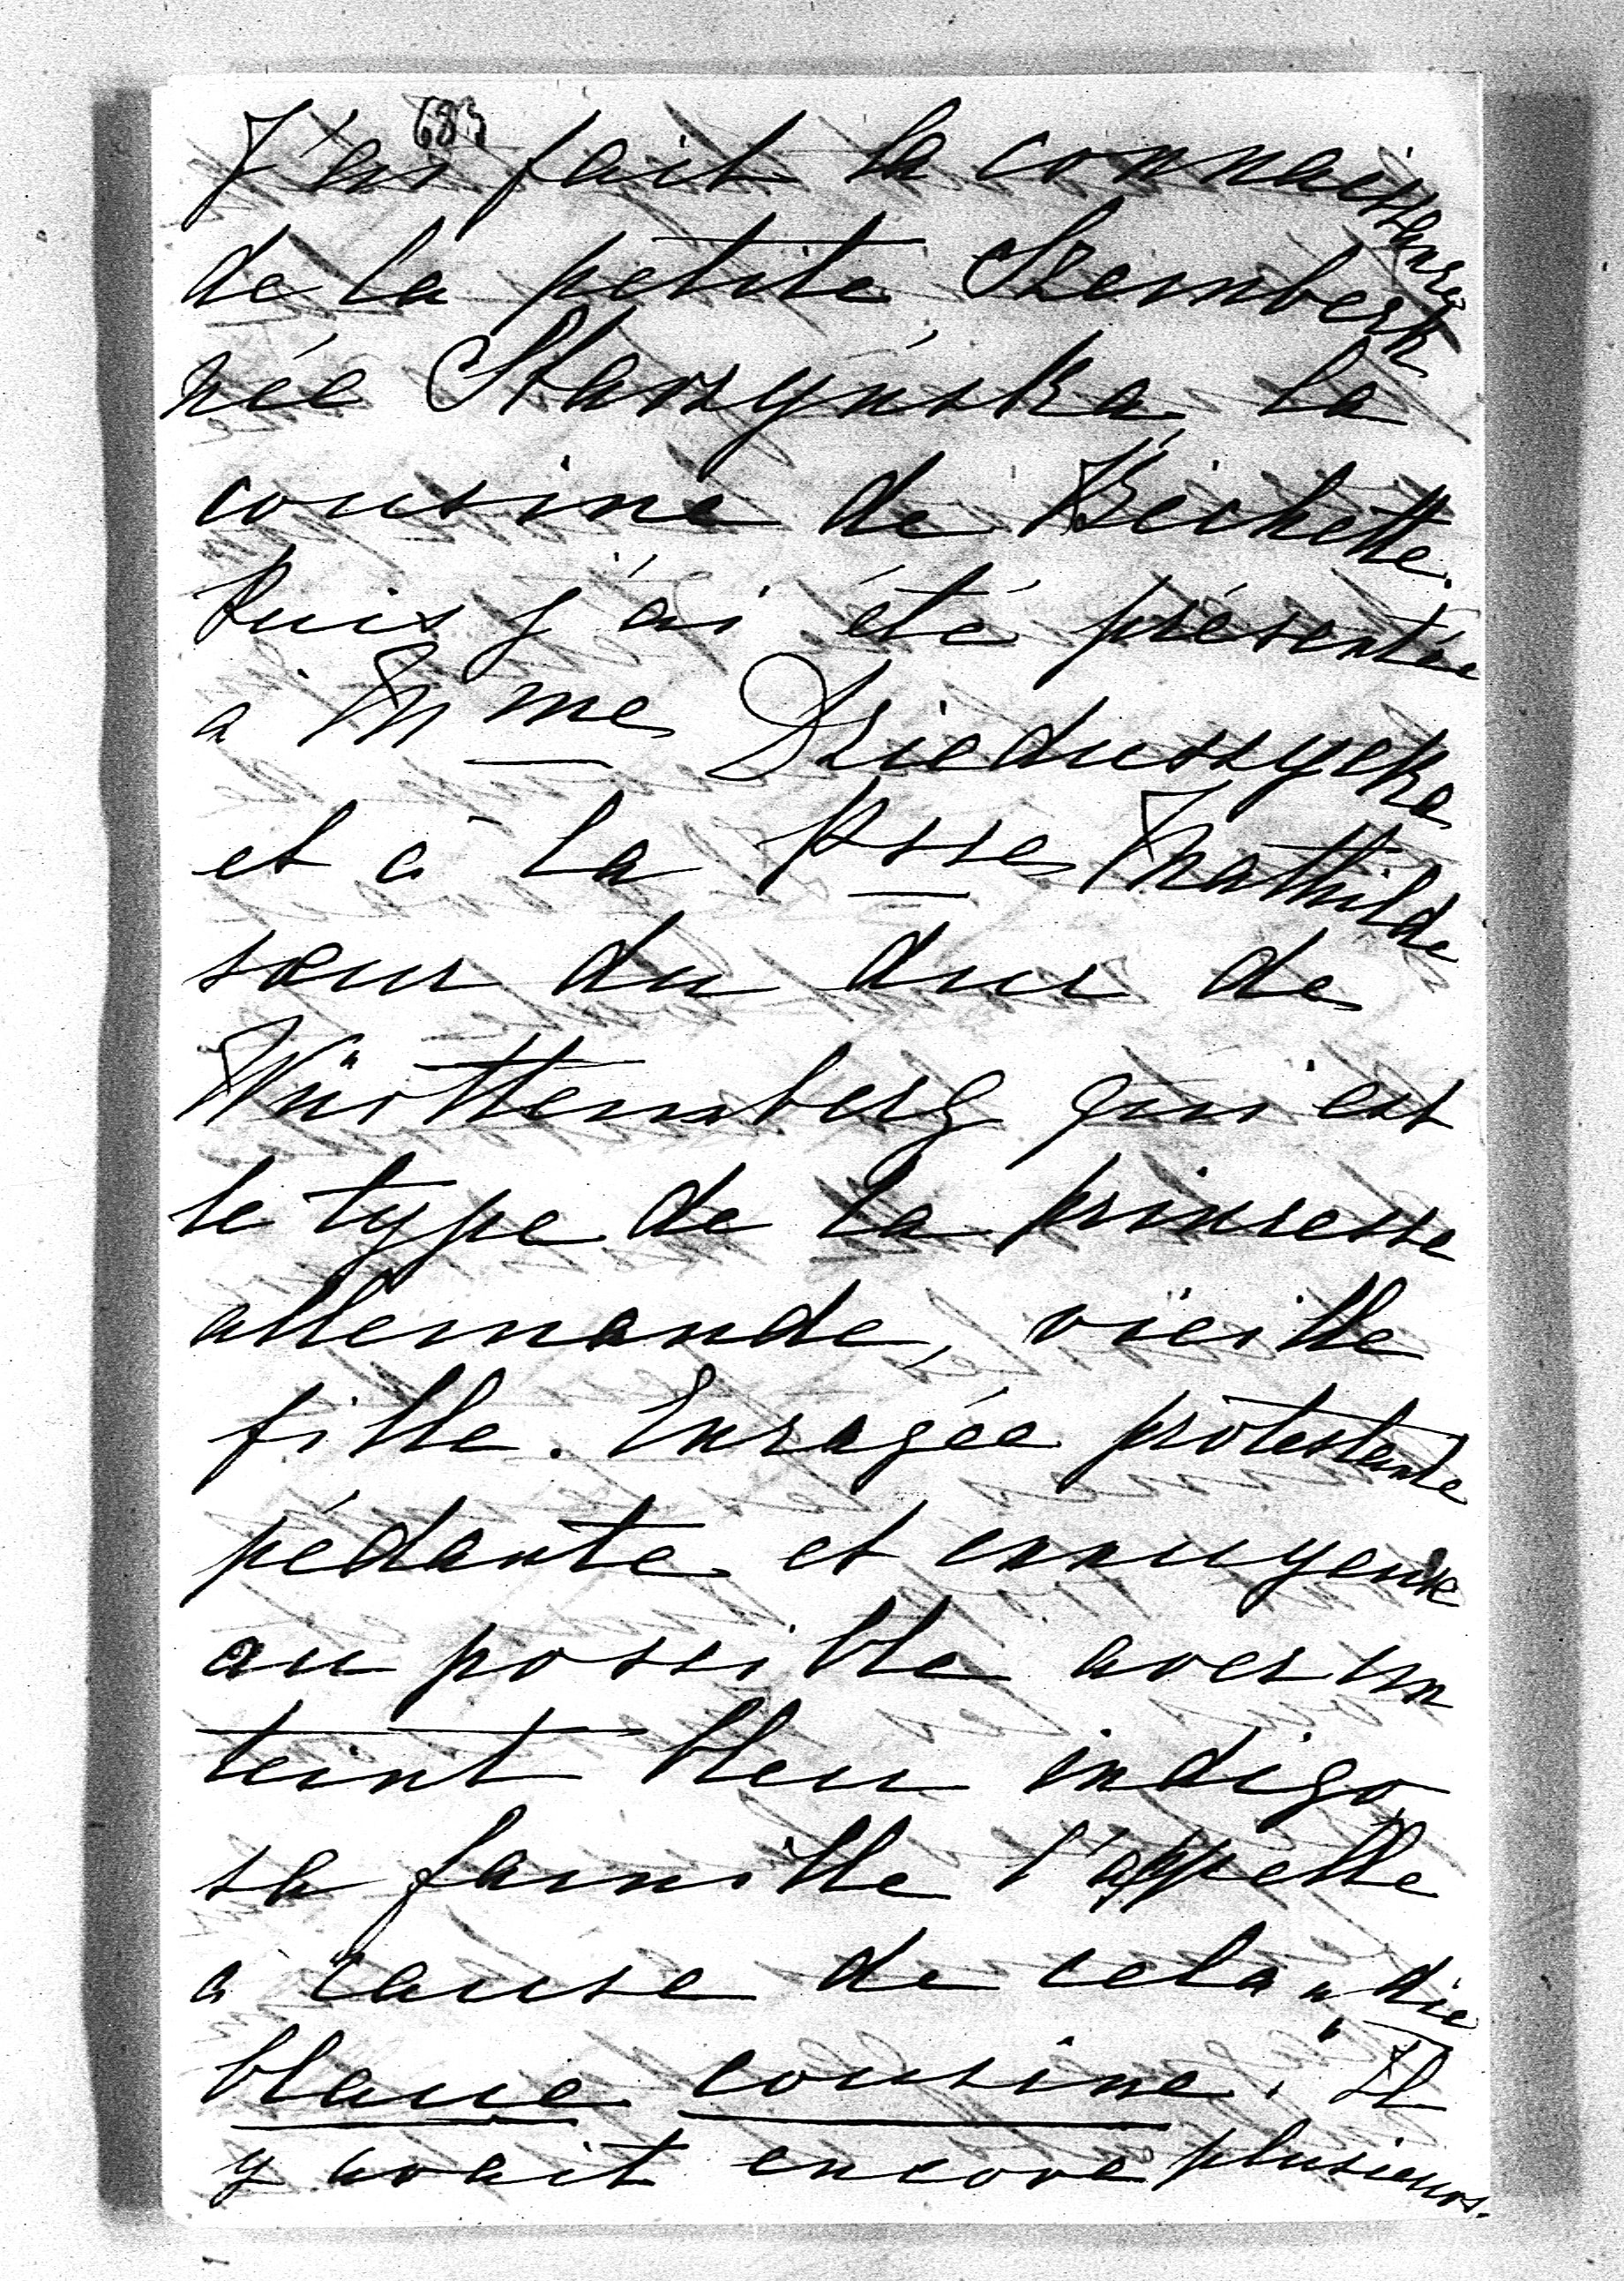 683
J'ai fait la connaissance
de la petite Szembek
née Starzyńska la
cousine de Bichette.
Puis j'ai été présentée
à Mme Dzieduszycka
et à la Psse Mathilde
sœur du duc de
Württemberg qui est
le type de la princesse
allemande, vieille
fille. Enragée protestante
pédante et ennuyeuse
au possible avec un
teint bleu indigo,
sa famille l'appelle
à cause de cela „die
blaue cousine". Il
y avait encore plusieurs